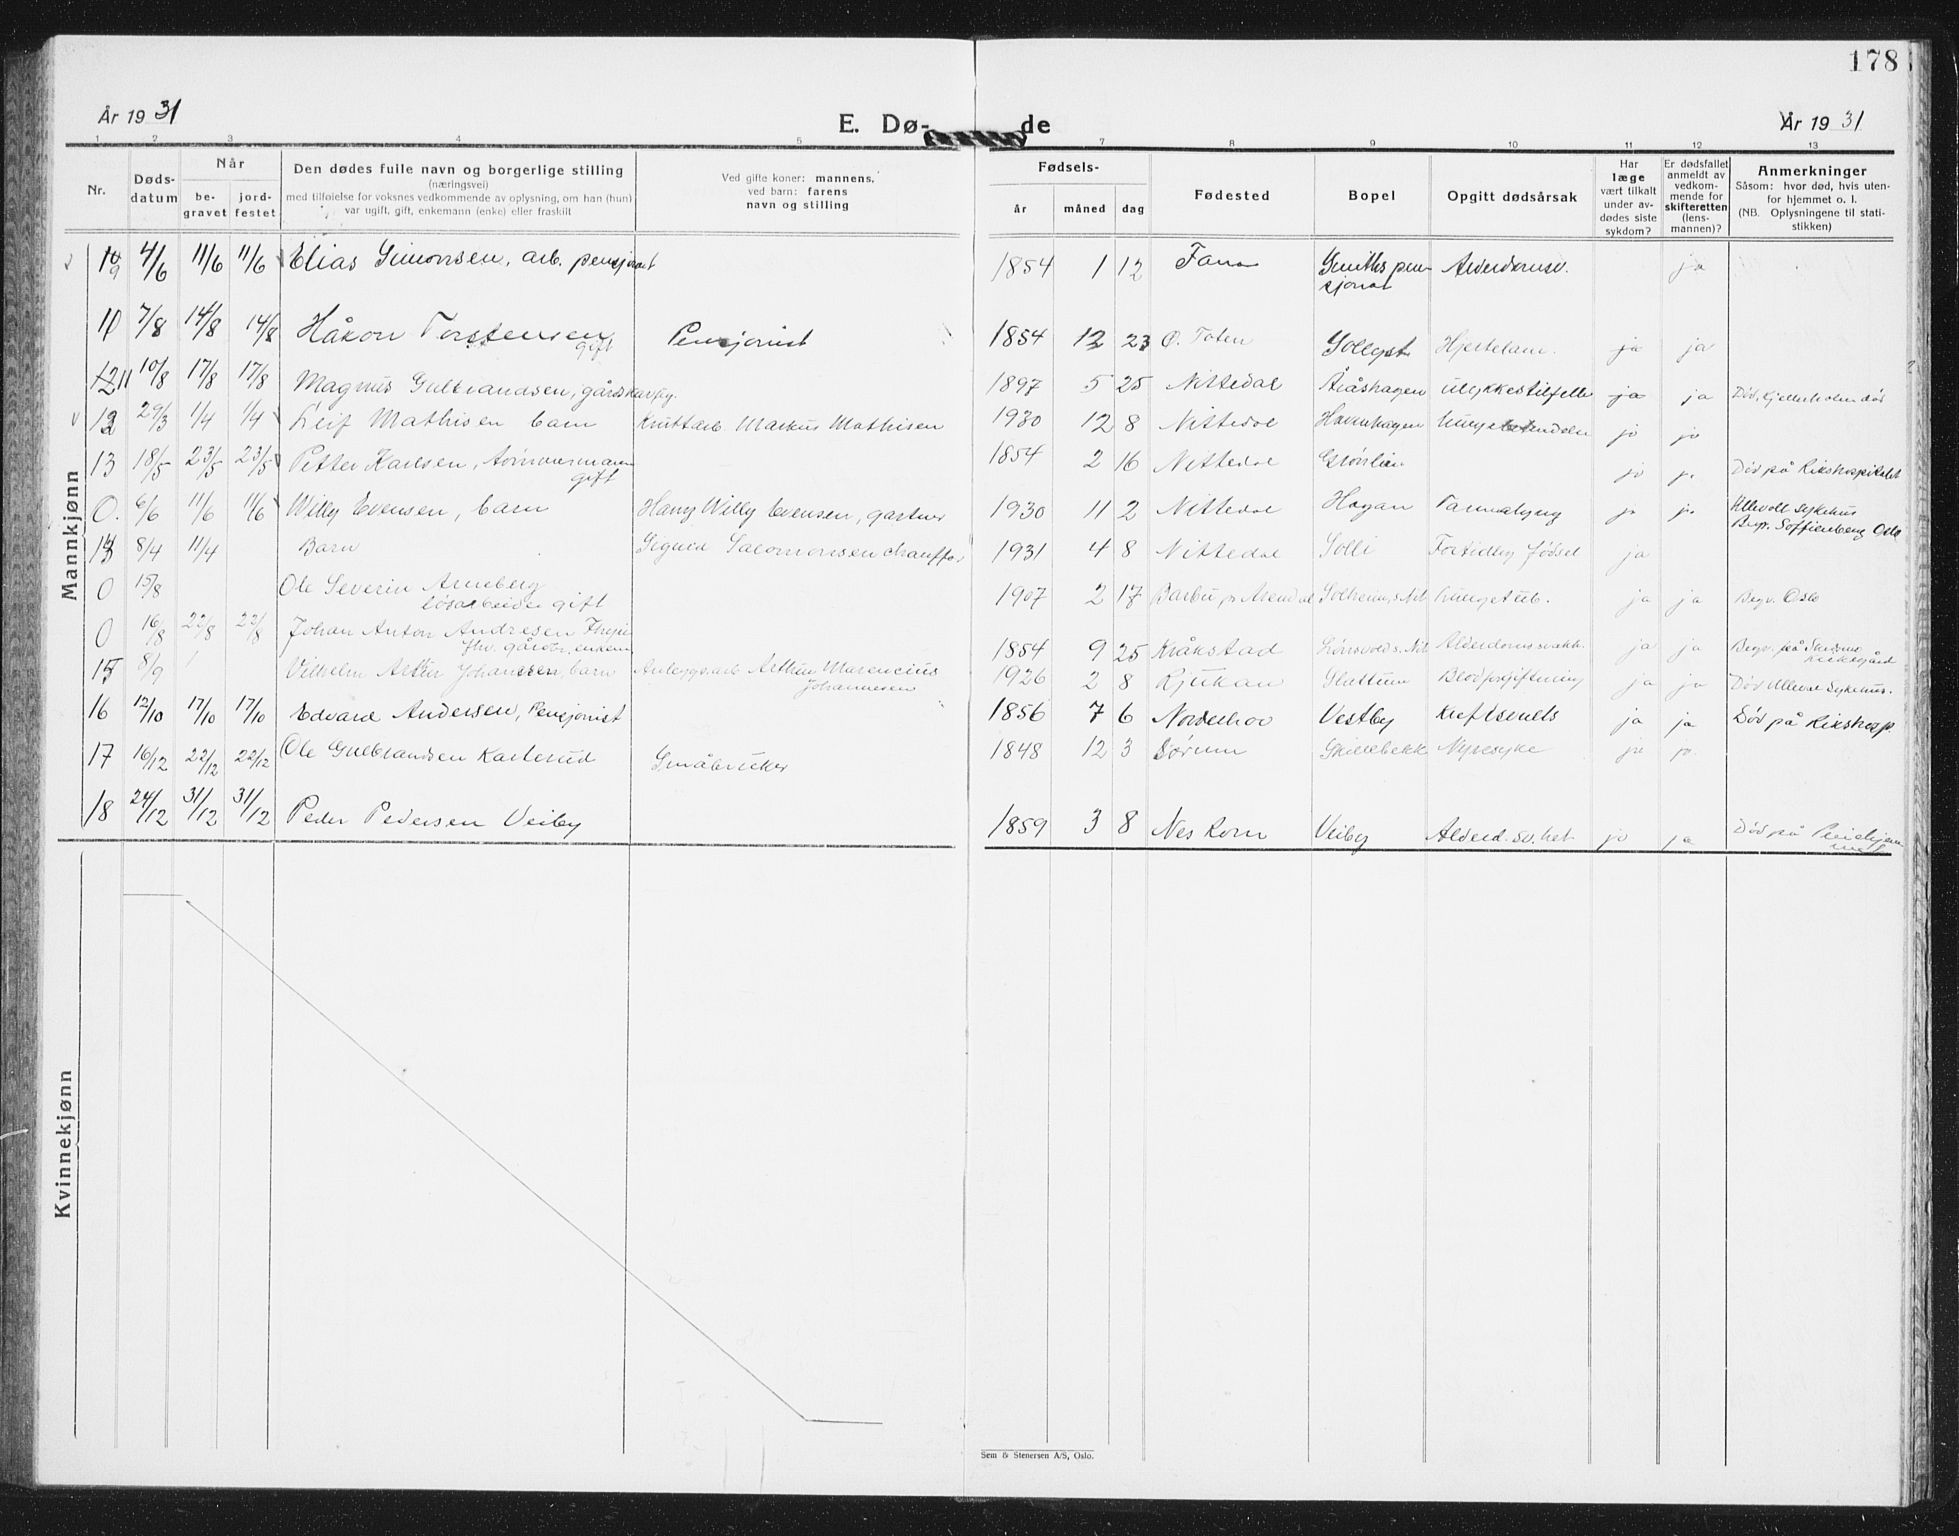 178
År 19 31
E. Dø-
de
År 19 31
1 2 3 4 5 7 8 9 10 11 12 13
Nr.
Døds-
datum
Når
be-
gravet
jord-
festet
Den dødes fulle navn og borgerlige stilling
(næringsvei)
med tilføielse for voksnes vedkommende av oplysning, om han (hun)
var ugift, gift, enkemann (enke) eller fraskilt
Ved gifte koner: mannens,
ved barn: farens
navn og stilling
Fødsels-
år måned dag
Fødested
Bopel
Opgitt dødsårsak
Har
læge
vært tilkalt
under av-
dødes siste
sykdom?
Er dødsfallet
anmeldt av
vedkom-
mende for
skifteretten
(lens-
mannen)?
Anmerkninger
Såsom: hvor død, hvis uten-
for hjemmet o. l.
(NB. Oplysningene til stati-
stikken)
Mannkjønn
4/6 11/6 11/6 Elias Simonsen, arb. pensjonist 1854 1 12 Fana Smiths pen- Alderdomsv. ja
sjonat
7/8 14/8 14/8 Håkon Torstensen Pensjonist 1854 12 23 Ø. Toten Sollyst Hjertelam. ja ja
gift
11 10/8 17/8 17/8 Magnus Gulbrandsen, 1897 5 25 Nittedal Åråshagen ulykkestilfelle ja ja
12 29/3 1/4 1/4 Leif Mathisen barn Kruttarb Markus Mathisen 1930 12 8 Nittedal Havnhagen jo jo
13 18/5 23/5 23/5 Petter Karlsen, tømmermann 1854 2 16 Nittedal Grønlien jo ja Død på Rikshospitalet
gift
0. 6/6 11/6 11/6 Willy Evensen, barn Harry Willy Evensen, gartner 1930 11 2 Nittedal Hagan ja ja Ullevoll Sykehus
Begr. Soffienberg Oslo
8/4 11/4 Barn Sigurd Salomonsen chauffør 1931 4 8 Nittedal Solli Fortidlig fødsel ja
0 15/8 Ole Severin Arneberg 1907 2 17 Barbu pr Arendal Solheim, s. Nit Lungetub. ja ja Begr. Oslo
løsarbeider gift
0 16/8 22/8 22/8 Johan Anton Andresen 1854 9 25 Kråkstad Alderdomssvakh. ja ja Begr. på Skedsmo
fhv. gårdbr, enkem kirkegård
15 8/9 Vilhelm Artur Johansen, barn Anleggsarb Arthur Marencius 1926 2 8 Rjukan Slattum Blodforgiftning ja ja Død Ullevål Sykehus.
Johannesen
16 12/10 17/10 17/10 Edvard Andersen, Pensjonist 1856 7 6 Norderhov Vestby Kreftsvulst ja ja Død på Rikshosp
17 16/12 22/12 22/12 Ole Gulbrandsen Karterud Småbruker 1848 12 3 Sørum Skillebekk Nyresyke ja jo
18 24/12 31/12 31/12 Peder Pedersen Veiby 1859 3 8 Nes Rom Veiby Alderd. sv. het jo ja Død på Pleiehjem
Kvinnekjønn
Sem & Stenersen A/S, Oslo.